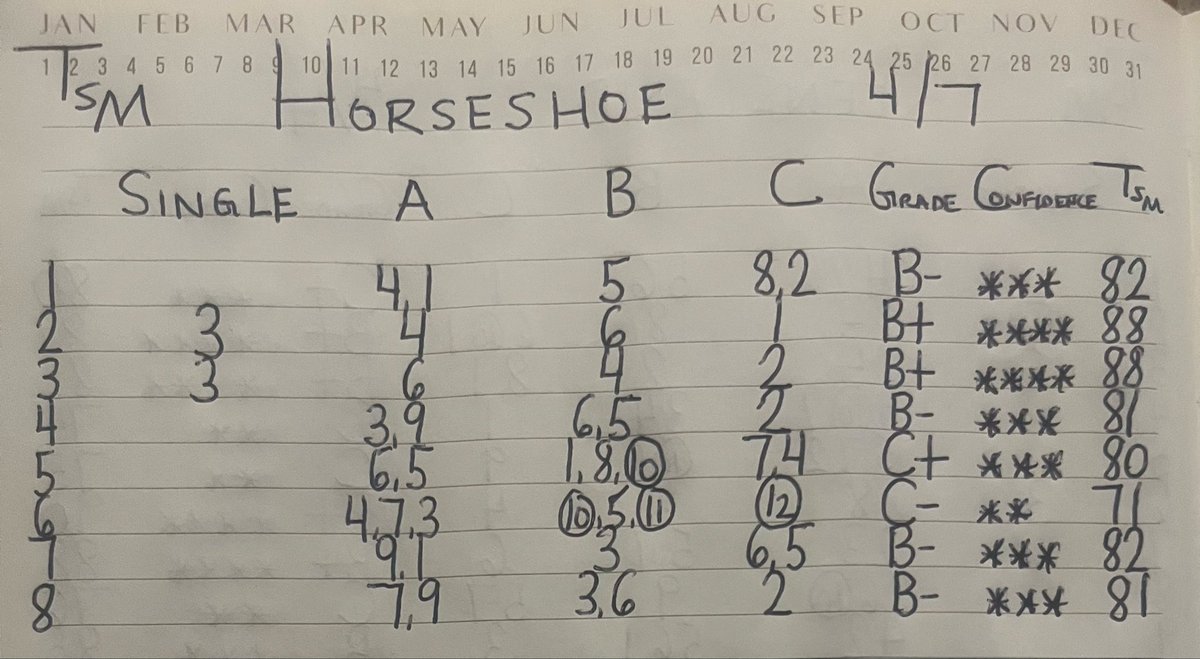 JAN FEB MAR APR MAY JUN JUL AUG SEP OCT NOV DEC
1 2 3 4 5 6 7 8 9 10 11 12 13 14 15 16 17 18 19 20 21 22 23 24 25 26 27 28 29 30 31
TSM HORSESHOE 4/7
SINGLE A B C GRADE CONFIDENCE TSM
1 4,1 5 8,2 B- *** 82
2 3 4 6 1 B+ **** 88
3 3 6 4 2 B+ **** 88
4 3,9 6,5 2 B- *** 81
5 6,5 1,8,10 7,4 C+ *** 80
6 4,7,3 10,5,11 12 C- ** 71
7 9,1 3 6,5 B- *** 82
8 7,9 3,6 2 B- *** 81